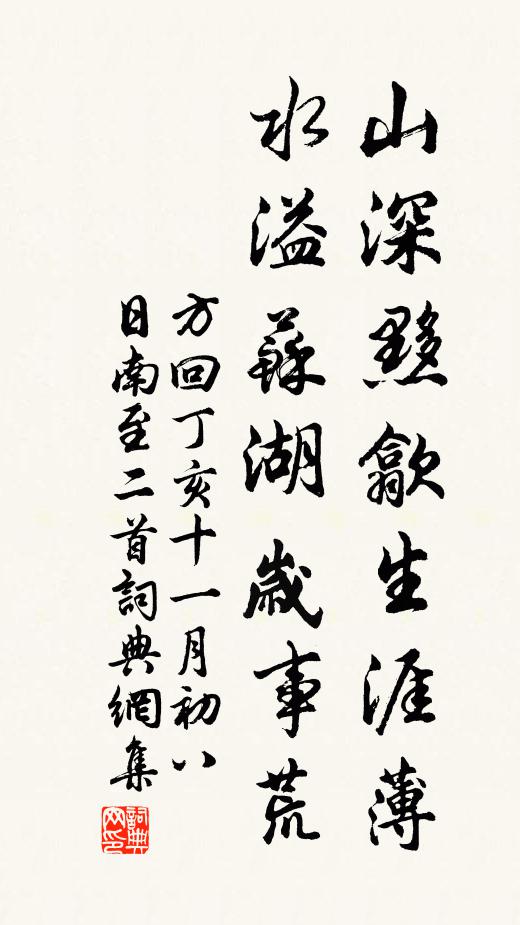 山深黟歙生涯薄
水溢蘇湖歲事荒
方回丁亥十一月初八
日南至二首詞典網集
詞典網印